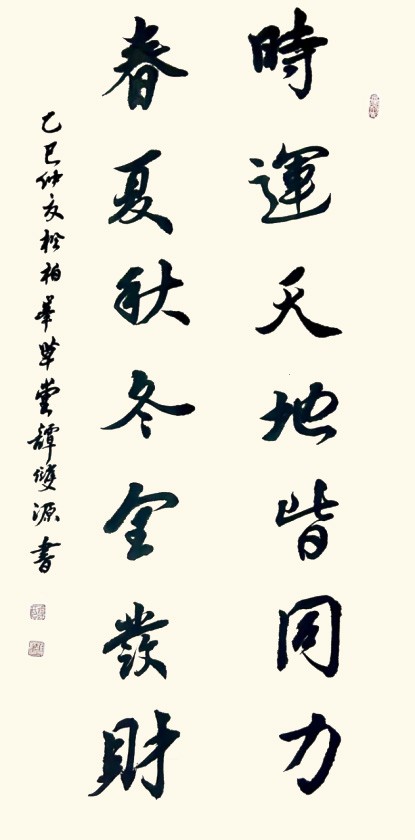 時運天地皆同力
春夏秋冬全發財
乙巳仲夏松柏峯草堂譚雙源書